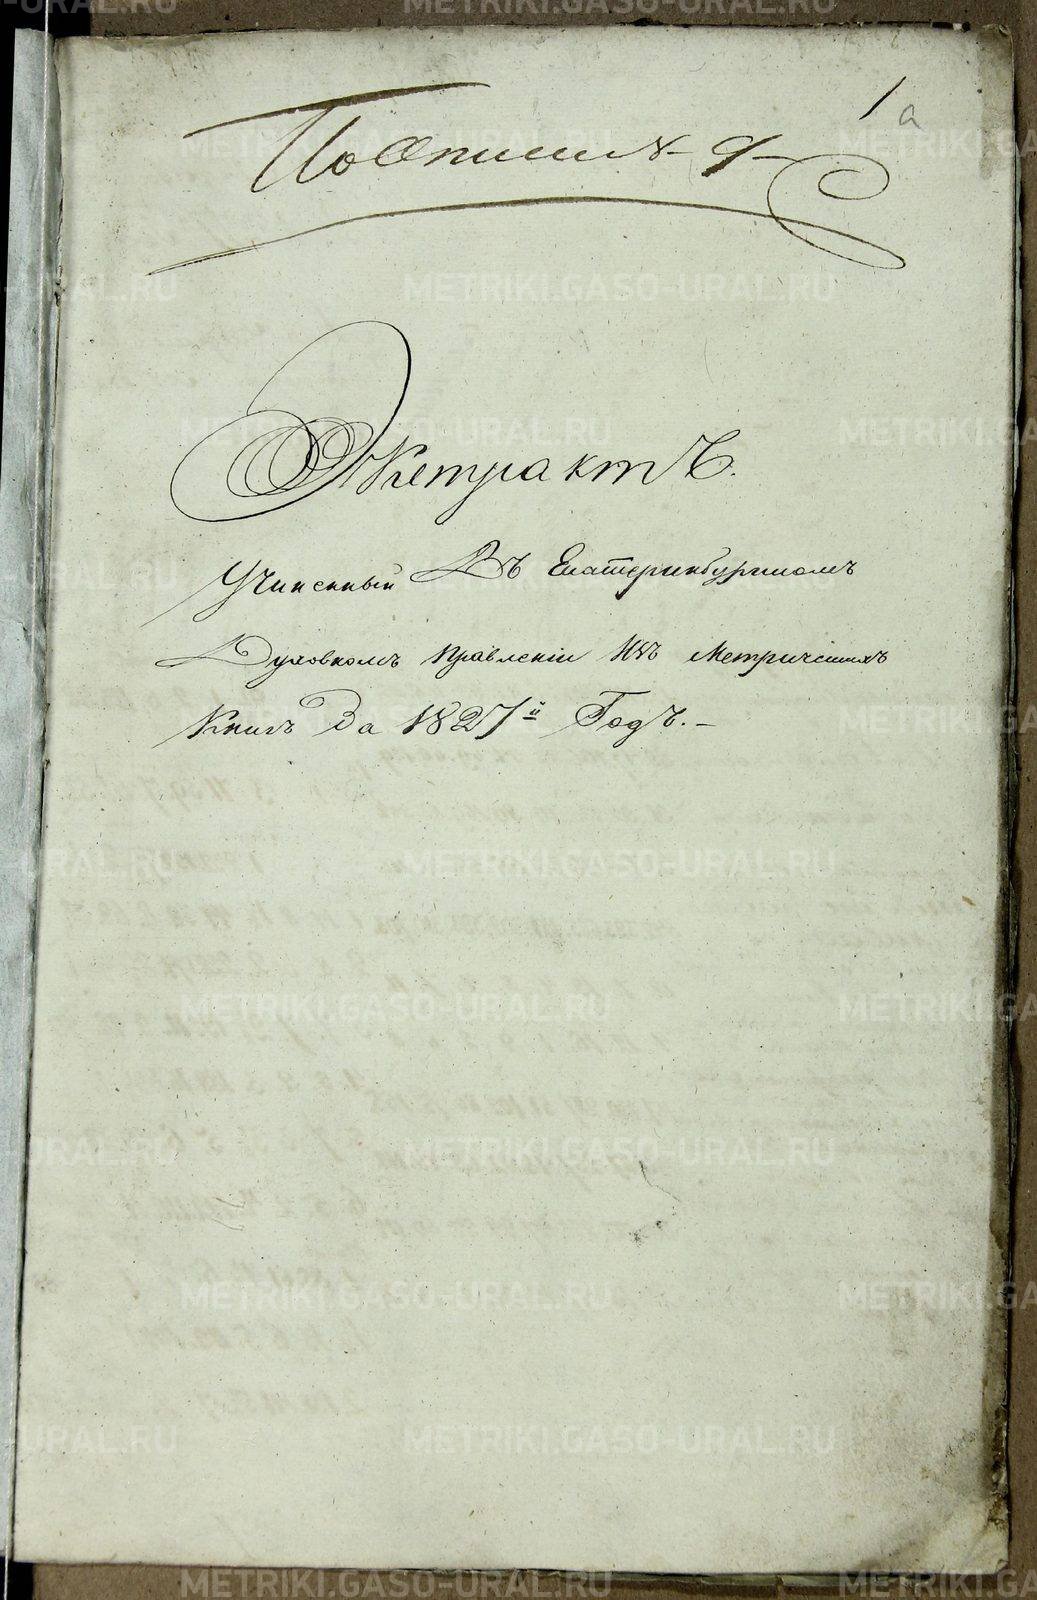 1 а
По Описи № 9
Экстрактъ.
Учиненный Въ Екатеринбургскомъ
Духовномъ Правленіи Изъ Метрическихъ
Книгъ За 1827й Годъ.-
METRIKI.GASO-URAL.RU